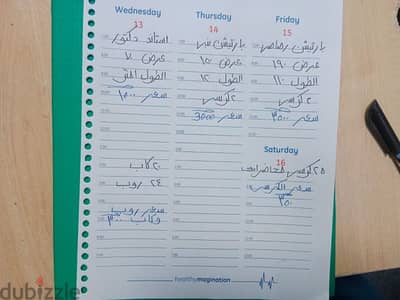 Wednesday
13
استاند دكتور
عرض ٧٠
الطول المتر
سعر ١٥٠٠
٢٠ كاب
٢٤ روب
سعر روب
وكاب ٣٠٠
Thursday
14
بارتيشن
عرض ١٥٠
الطول ١٢٠
٢ كرسي
سعر 3000
Friday
15
بارتيشن رصاصي
عرض ١٩٠
الطول ١١٠
٢ كرسي
سعر ٣٥٠٠
Saturday
16
٢٥ كرسي محاضرات
سعر الكرسي
٣٥٠
healthymagination
dubizzle